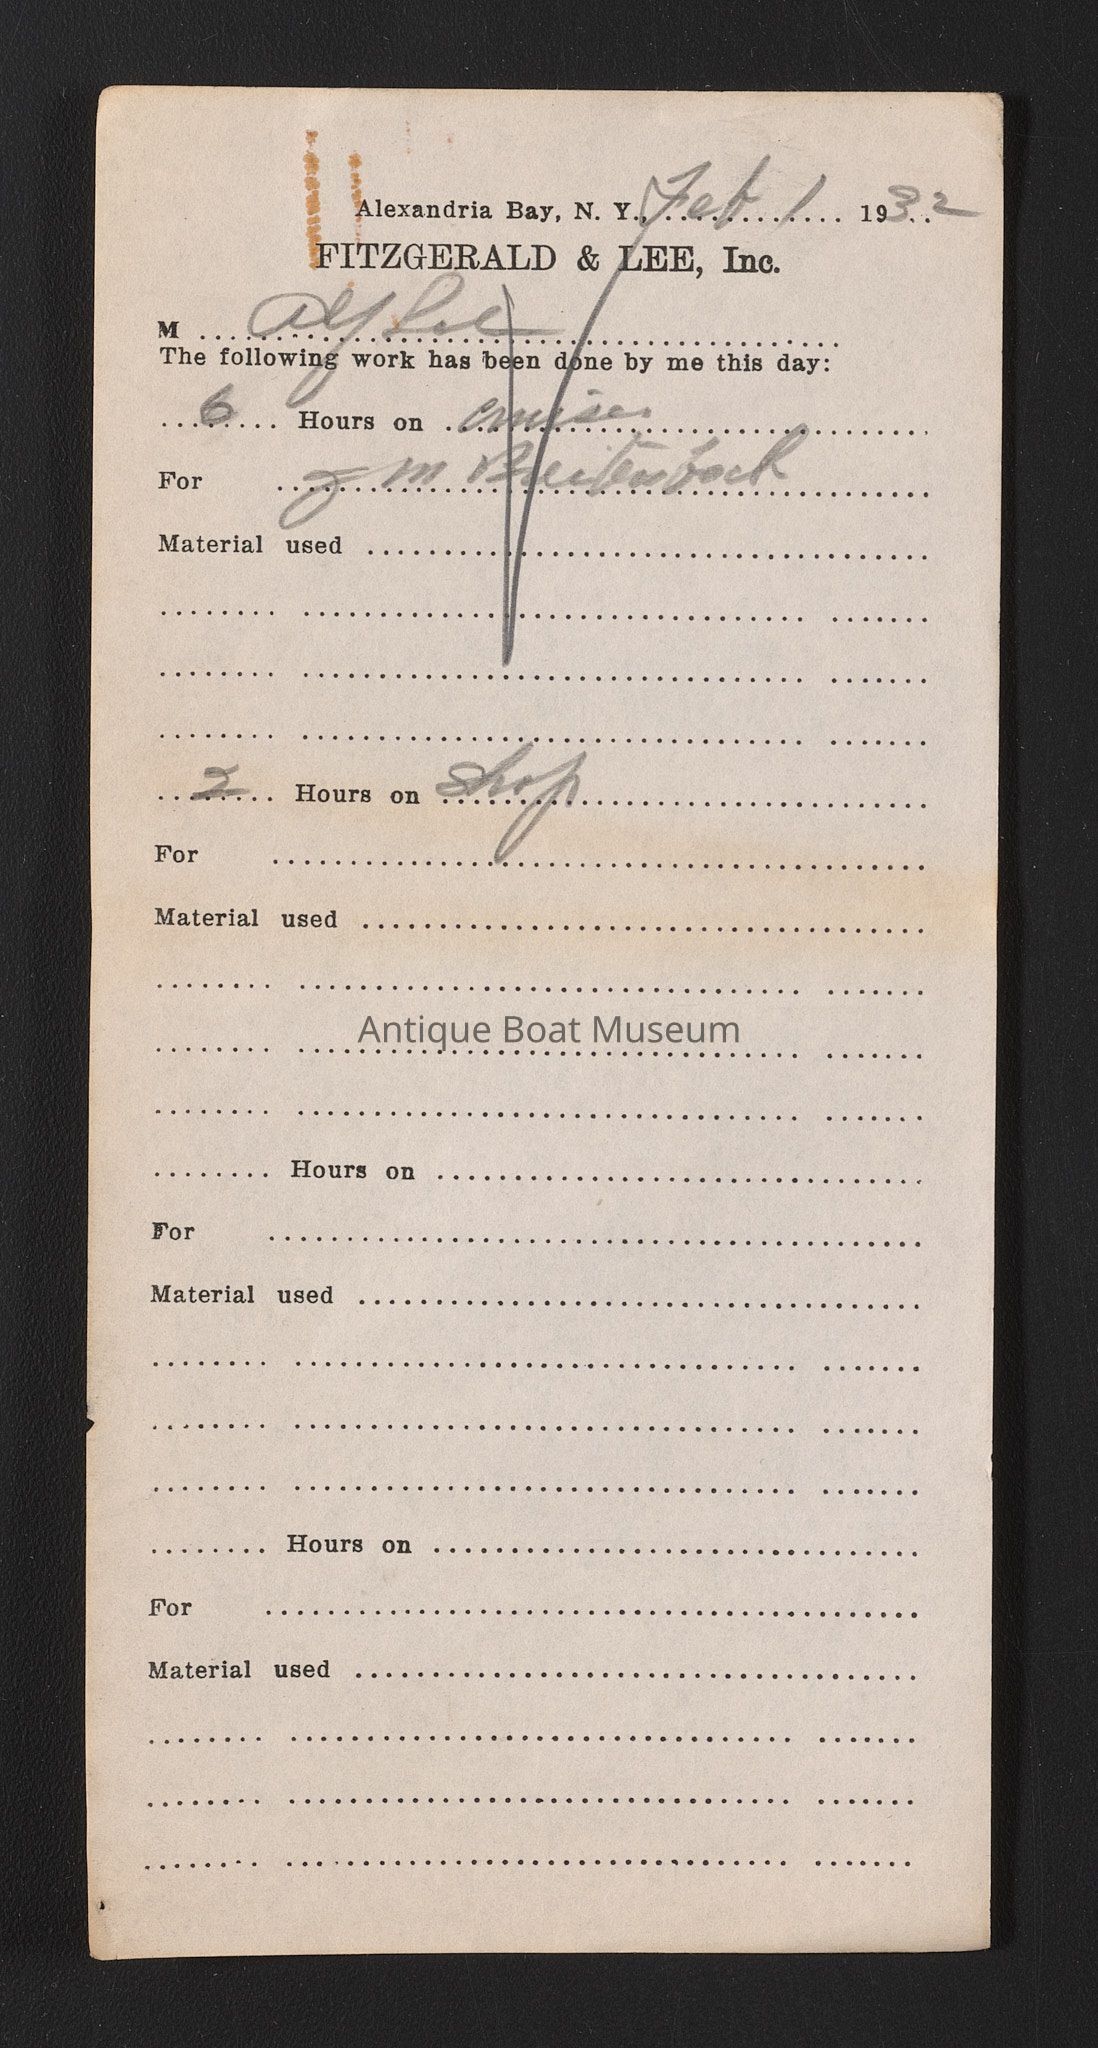 Alexandria Bay, N. Y., Feb 1 1932
FITZGERALD & LEE, Inc.
M Alf Lee
The following work has been done by me this day:
6 Hours on cruiser
For J M Breitenbach
Material used
2 Hours on shop
For
Material used
Antique Boat Museum
Hours on
For
Material used
Hours on
For
Material used